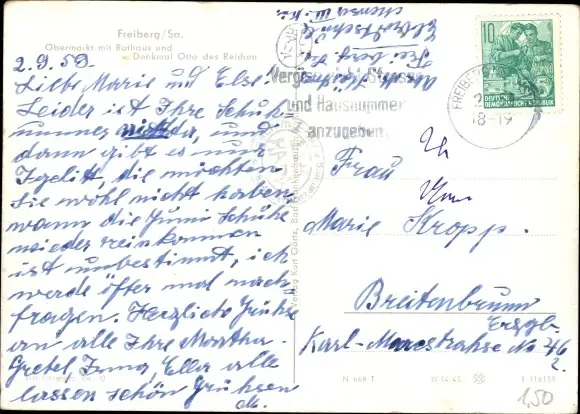 Freiberg/Sa.
Obermarkt mit Rathaus und
Denkmal Otto des Reichen
2.9.59.
Liebe Marie und Else.
Leider ist Ihre Schuh
nummer nicht da, und
dann gibt es nur
Igelitt, die möchten
Sie wohl nicht haben,
wann die Gummi Schuhe
wieder reinkommen
ist unbestimmt, ich
werde öfter mal nach
fragen. Herzliche Grüße
an alle Ihre Martha.
Gretel, Ella alle
lassen schön Grüßen
Vergiß nicht Straße
und Hausnummer
anzugeben
10
DEUTSCHE
DEMOKRATISCHE REPUBLIK
FREIBERG
18-19
Frau
Marie Kropp.
Breitenbrunn
Erzgb.
Karl-Marxstraße No 46
2.
Verlag Kurt Görtz, Bad
N 668 T
IV-14-45
1,50